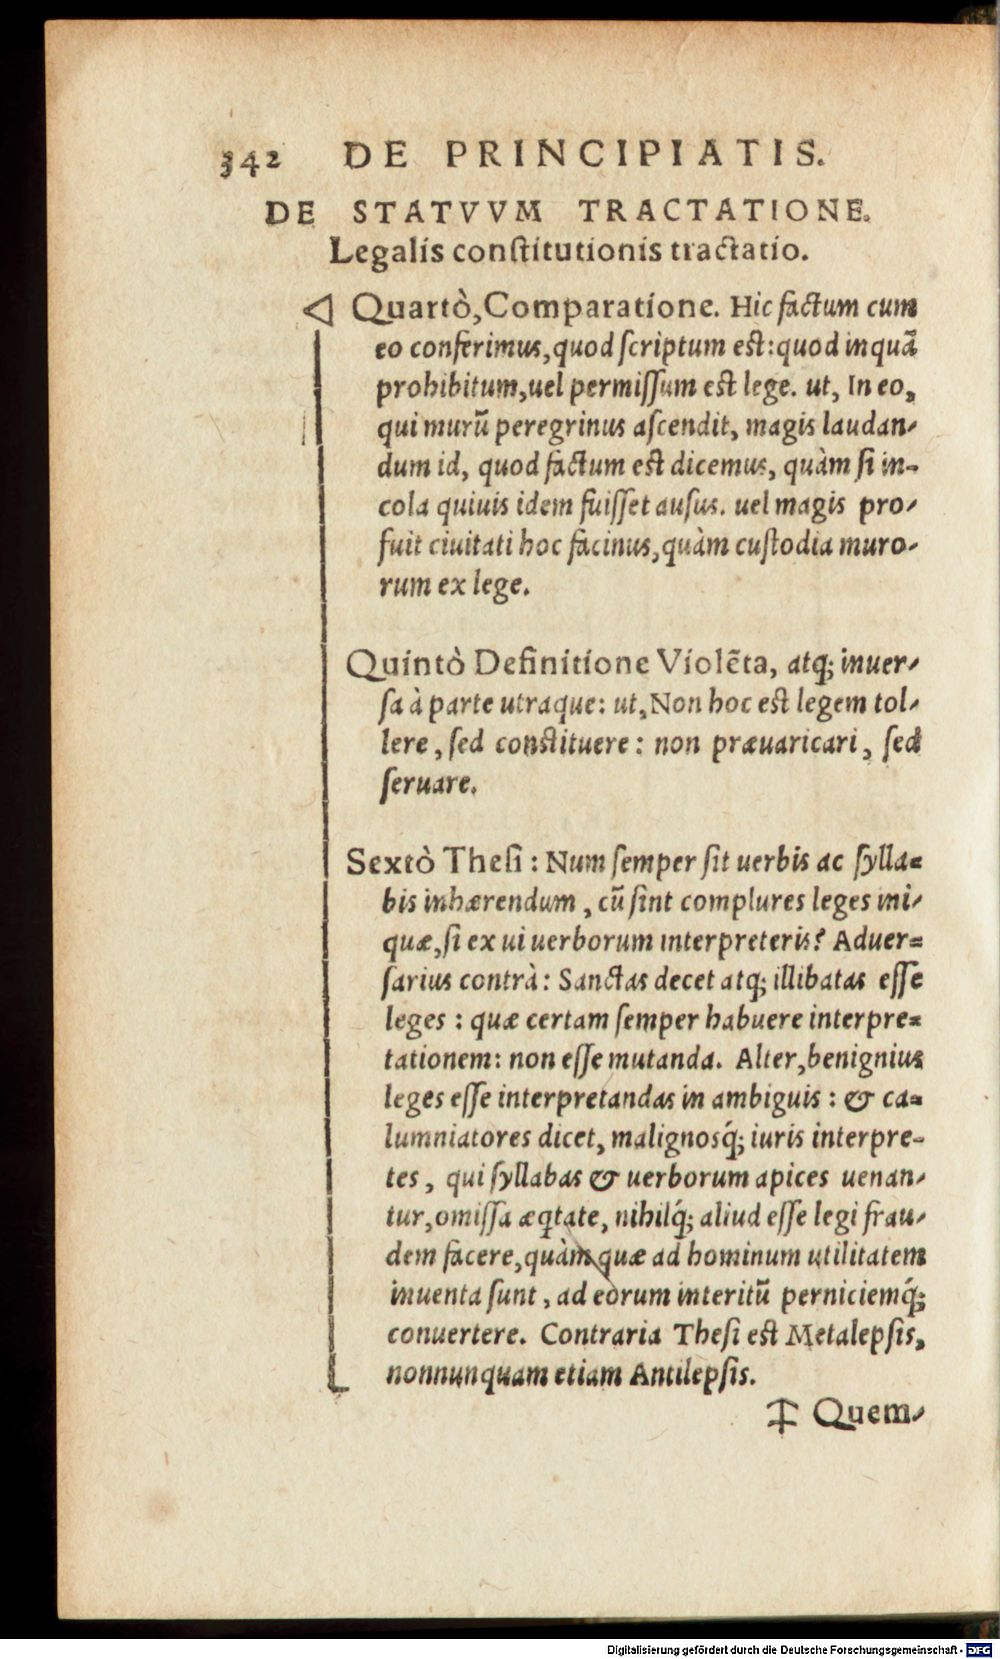 342 DE PRINCIPIATIS.
DE STATVVM TRACTATIONE.
Legalis conſtitutionis tractatio.
Quartò, Comparatione. Hic factum cum
eo conferimus, quod ſcriptum eſt: quod inquã
prohibitum, uel permiſſum eſt lege. ut, In eo,
qui murũ peregrinus aſcendit, magis laudan-
dum id, quod factum eſt dicemus, quàm ſi in-
cola quiuis idem fuiſſet auſus. uel magis pro-
fuit ciuitati hoc facinus, quàm cuſtodia muro-
rum ex lege.
Quintò Definitione Violẽta, atq; inuer-
ſa à parte utraque: ut, Non hoc eſt legem tol-
lere, ſed conſtituere: non præuaricari, ſed
ſeruare.
Sextò Theſi: Num ſemper ſit uerbis ac ſylla-
bis inhærendum, cũ ſint complures leges ini-
quæ, ſi ex ui uerborum interpreteris? Aduer-
ſarius contrà: Sanctas decet atq; illibatas eſſe
leges: quæ certam ſemper habuere interpre-
tationem: non eſſe mutanda. Alter, benignius
leges eſſe interpretandas in ambiguis: & ca-
lumniatores dicet, malignosq́; iuris interpre-
tes, qui ſyllabas & uerborum apices uenan-
tur, omiſſa æq̃tate, nihilq́; aliud eſſe legi frau-
dem facere, quàm quæ ad hominum utilitatem
inuenta ſunt, ad eorum interitũ perniciemq́;
conuertere. Contraria Theſi eſt Metalepſis,
nonnunquam etiam Antilepſis.
‡ Quem-
Digitalisierung gefördert durch die Deutsche Forschungsgemeinschaft - DFG